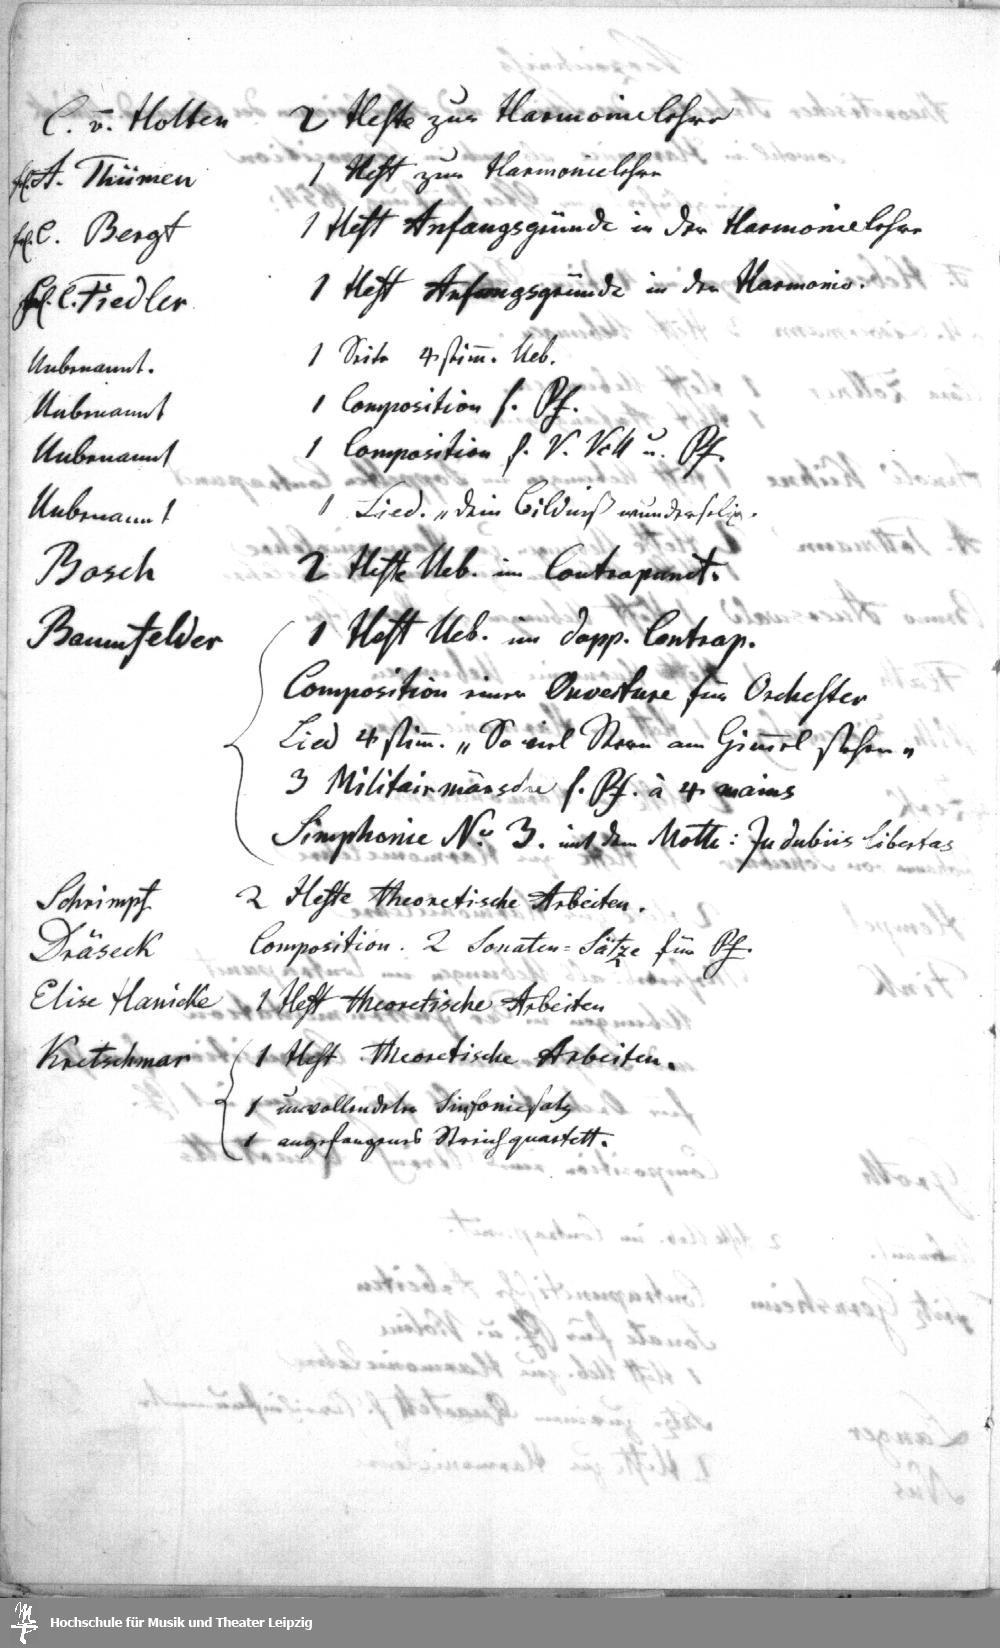 C. v. Holten 2 Hefte zur Harmonielehre
frl. A. Thümen 1 Heft zur Harmonielehre
frl. C. Bergt 1 Heft Anfangsgründe in der Harmonielehre
frl. C. Fiedler 1 Heft Anfangsgründe in der Harmonie.
Unbenannt. 1 Seite 4 stim̅. Ueb.
Unbenannt 1 Composition f. Pf.
Unbenannt 1 Composition f. V. Vcll u. Pf.
Unbenannt 1 Lied. „dein Bildniß wunderselig.
Bosch 2 Hefte Ueb. im Contrapunct.
Baumfelder 1 Heft Ueb. im dopp. Contrap.
Composition einer Ouverture für Orchester
Lied 4 stim̅. „So viel Stern am Him̅el stehen"
3 Militairmärsche f. Pf. à 4 mains
Simphonie No 3. mit dem Motto: In dubiis libertas
Schrimpf 2 Hefte theoretische Arbeiten.
Dräseck Composition. 2 Sonaten=Sätze für Pf.
Elise Hanicke 1 Heft theoretische Arbeiten
Kretschmar 1 Heft Theoretische Arbeiten.
1 unvollendeter Sinfoniesatz
1 angefangenes Streichquartett.
Hochschule für Musik und Theater Leipzig